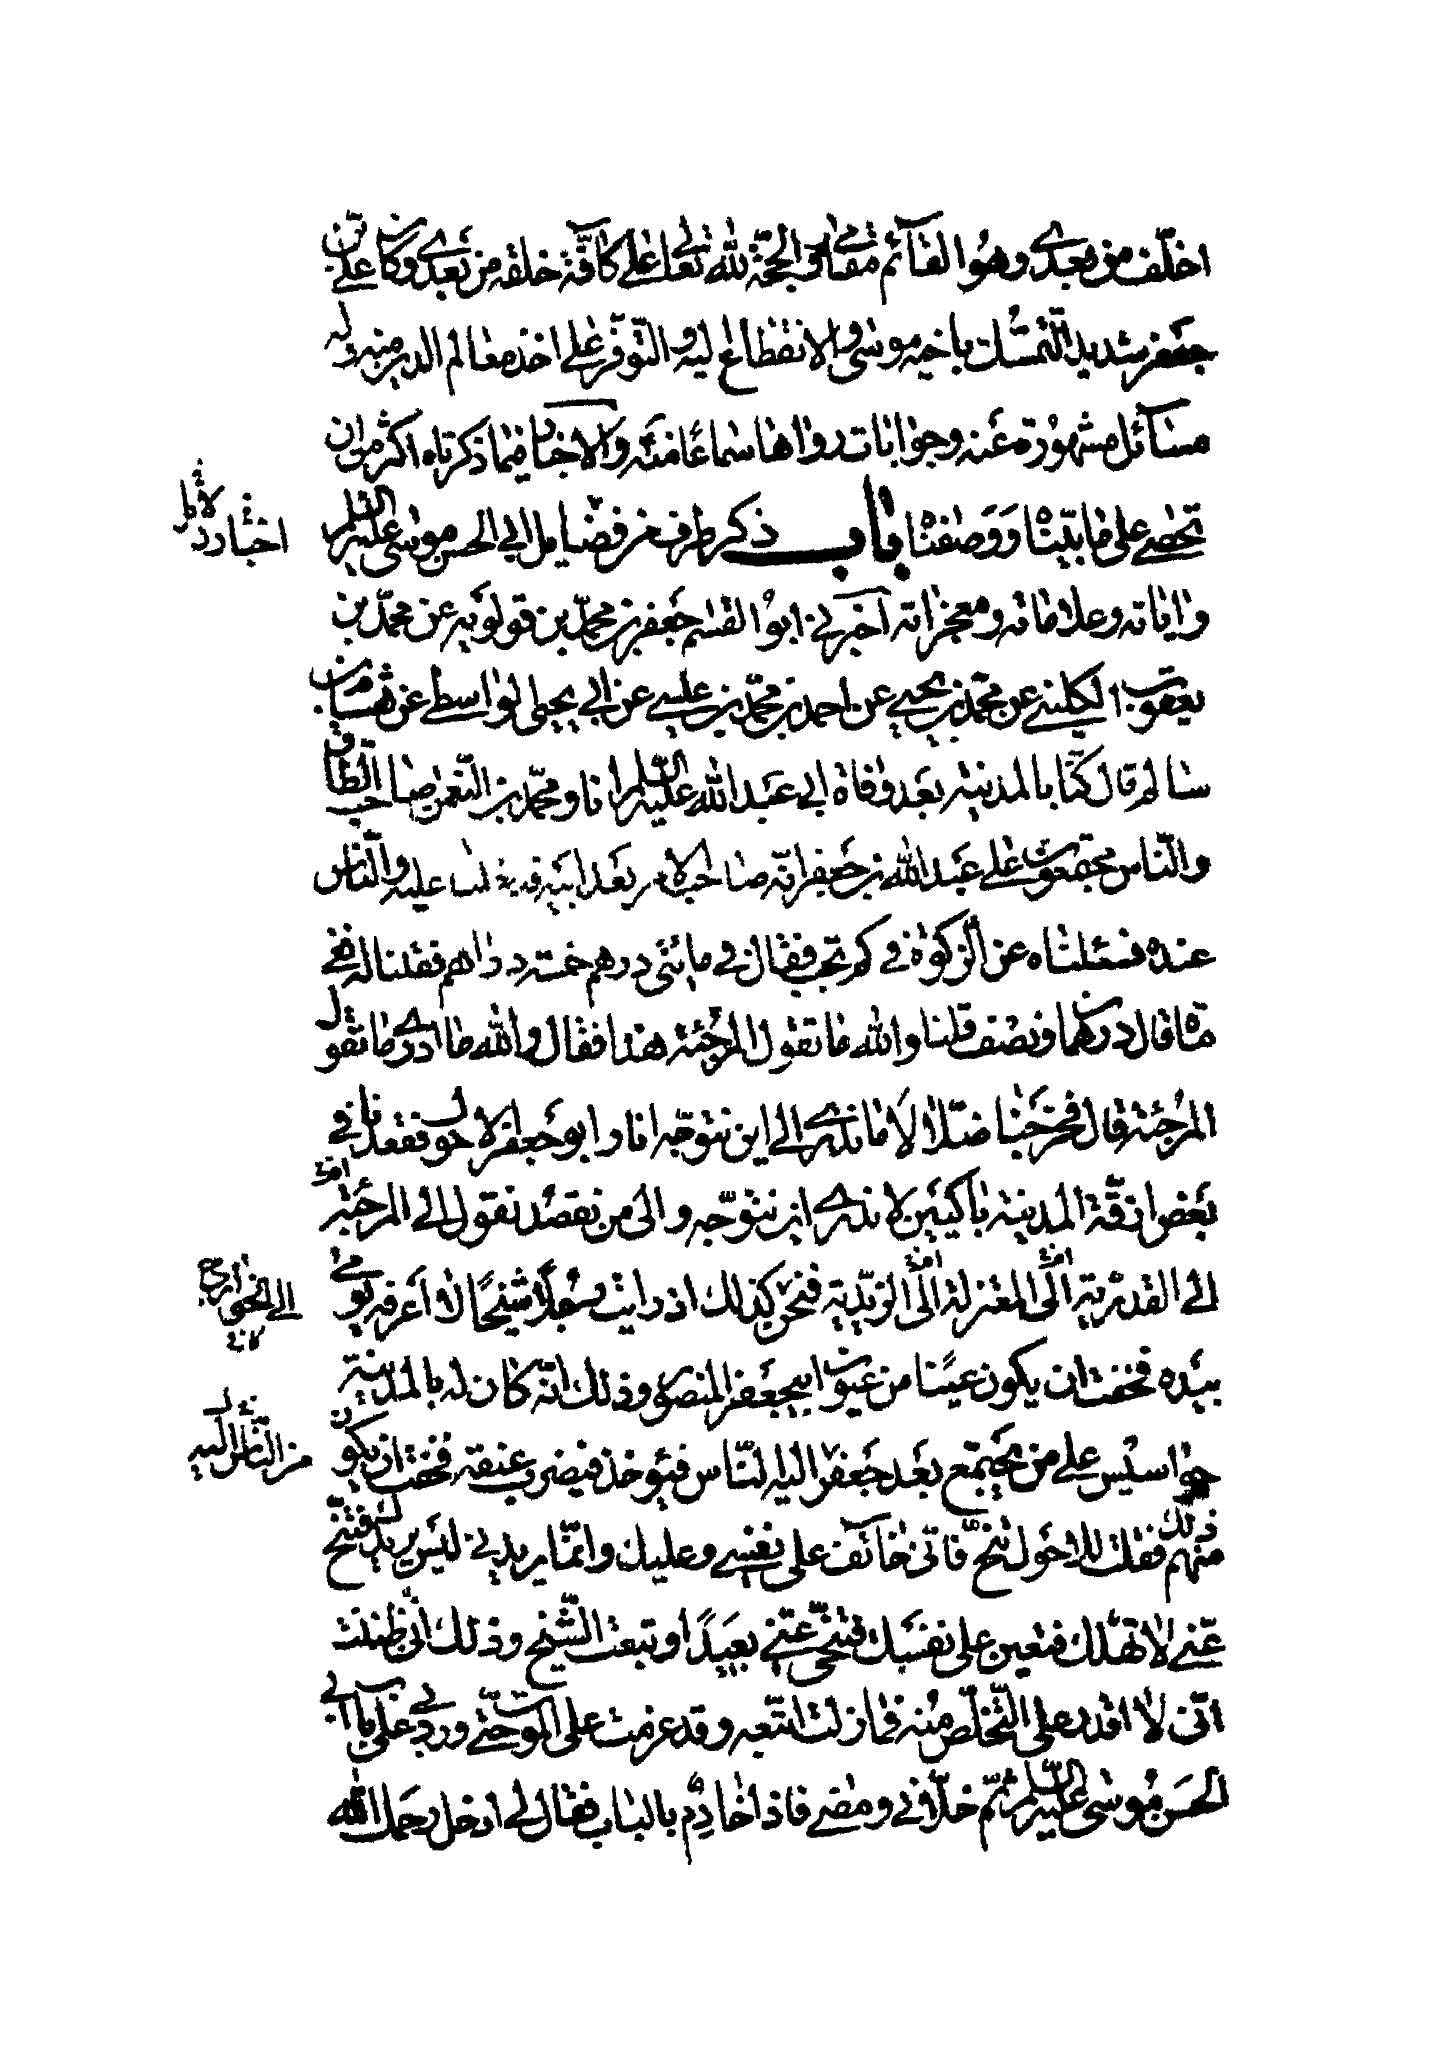 اخلّف من بعدي وهو القآئم مقامي والحجّة لله تعالى على كآفّة خلقه من بعدي وكان علىّ بن
جعفر شديد التمسّك باخيه موسى والانقطاع ليه والتوفّر على اخذ معالم الدين منه وله
مسآئل مشهورة عنه وجوابات رواها سماعًا منه والاخبار فيما ذكرناه اكثر من ان
تحصى على ما بيّنّاه ووصفناه باب ذكر طرف من فضايل ابي الحسن موسى عليه السّلم
واياته وعلاماته ومعجزاته آخبرني ابو القسم جعفر بن محمّد بن قولويه عن محمّد بن
يعقوب الكلينى عن محمّد بن يحيى عن احمد بن محمّد بن عيسى عن ابي يحيى الواسطى عن هشام بن
سالم قال كنّا بالمدينة بعد وفاة ابي عبد الله عليه السّلم انا ومحمّد بن النّعمن صاحب الطّاق
والنّاس مجتمعون على عبد الله بن جعفر انّه صاحب الامر بعد ابيه فدخلنا عليه والنّاس
عنده فسئلناه عن الزّكوة في كم تجب فقال في مائتى درهم خمسة دراهم فقلنا له ففى
مآة قال درهما ونصف قلنا والله ما تقول المرجئة هذا فقال والله ما ادرى ما تقول
المرجئة قال فخرجنا ضلّالا لا ما ندرى الى اين نتوجّه انا وابو جعفر الاحول فقعدنا في
بعض ازقّة المدينة باكيين لا ندرى اين نتوجّه والى من نقصد نقول الى المرجئة
الى القدريّة الى المعتزلة الى الزّيديّة فنحن كذلك اذ رايت رجلًا شيخًا لا اعرفه يومى
بيده فخفت ان يكون عينًا من عيون ابيجعفر المنصور وذلك انّه كان له بالمدينة
جواسيس على من يجتمع بعد جعفر اليه النّاس فيؤخذ فيضرب عنقه فخفت ان يكون
منهم ذلك فقلت للاحول تنحّ فانّى خآئف على نفسى وعليك وانّما يريدني ليس يريدك فتنحّ
عنّى لا تهلك فتعين على نفسك فتنحّى عنّى بعيدًا وتبعت الشّيخ وذلك انّى ظننت
انّى لا اقدر على التّخلّص منه فما زلت اتبعه وقد عزمت على الموت حتّى ورد بي على باب ابي
الحسن موسى عليه السّلم ثمّ خلّاني ومضى فاذا خادم بالباب فقال لى ادخل رحمك الله